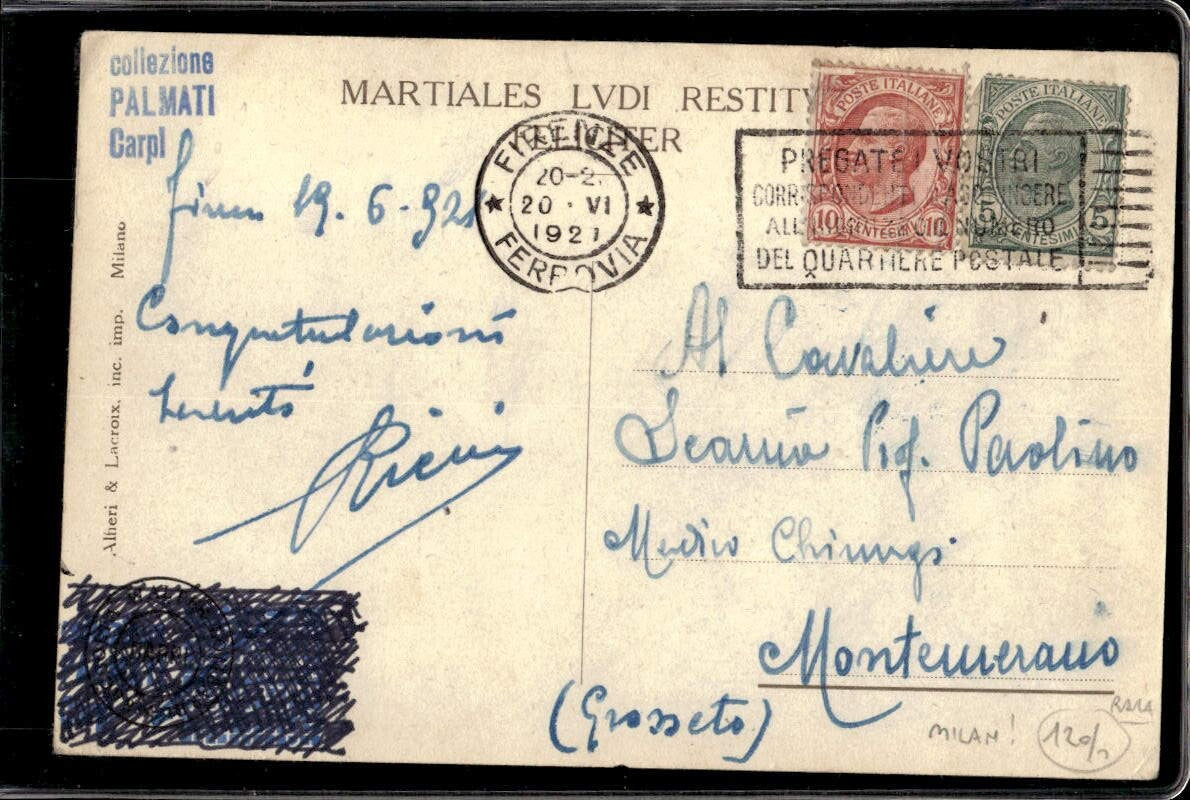 collezione
PALMATI
Carpi
MARTIALES LVDI RESTITV
FELICITER
POSTE ITALIANE
10 CENTESIMI 10
POSTE ITALIANE
5 CENTESIMI 5
FIRENZE
20-2
20 · VI
1921
FERROVIA
PREGATE I VOSTRI
CORRISPONDENTI AGGIUNGERE
ALL'INDIRIZZO NUMERO
DEL QUARTIERE POSTALE
19.6.921
Congratulazioni
Alfieri & Lacroix, inc. imp. Milano
Al Cavaliere
Prof. Paolino
Medico Chirurgo
Montemerano
(Grosseto)
MILAN!
RARA
120/